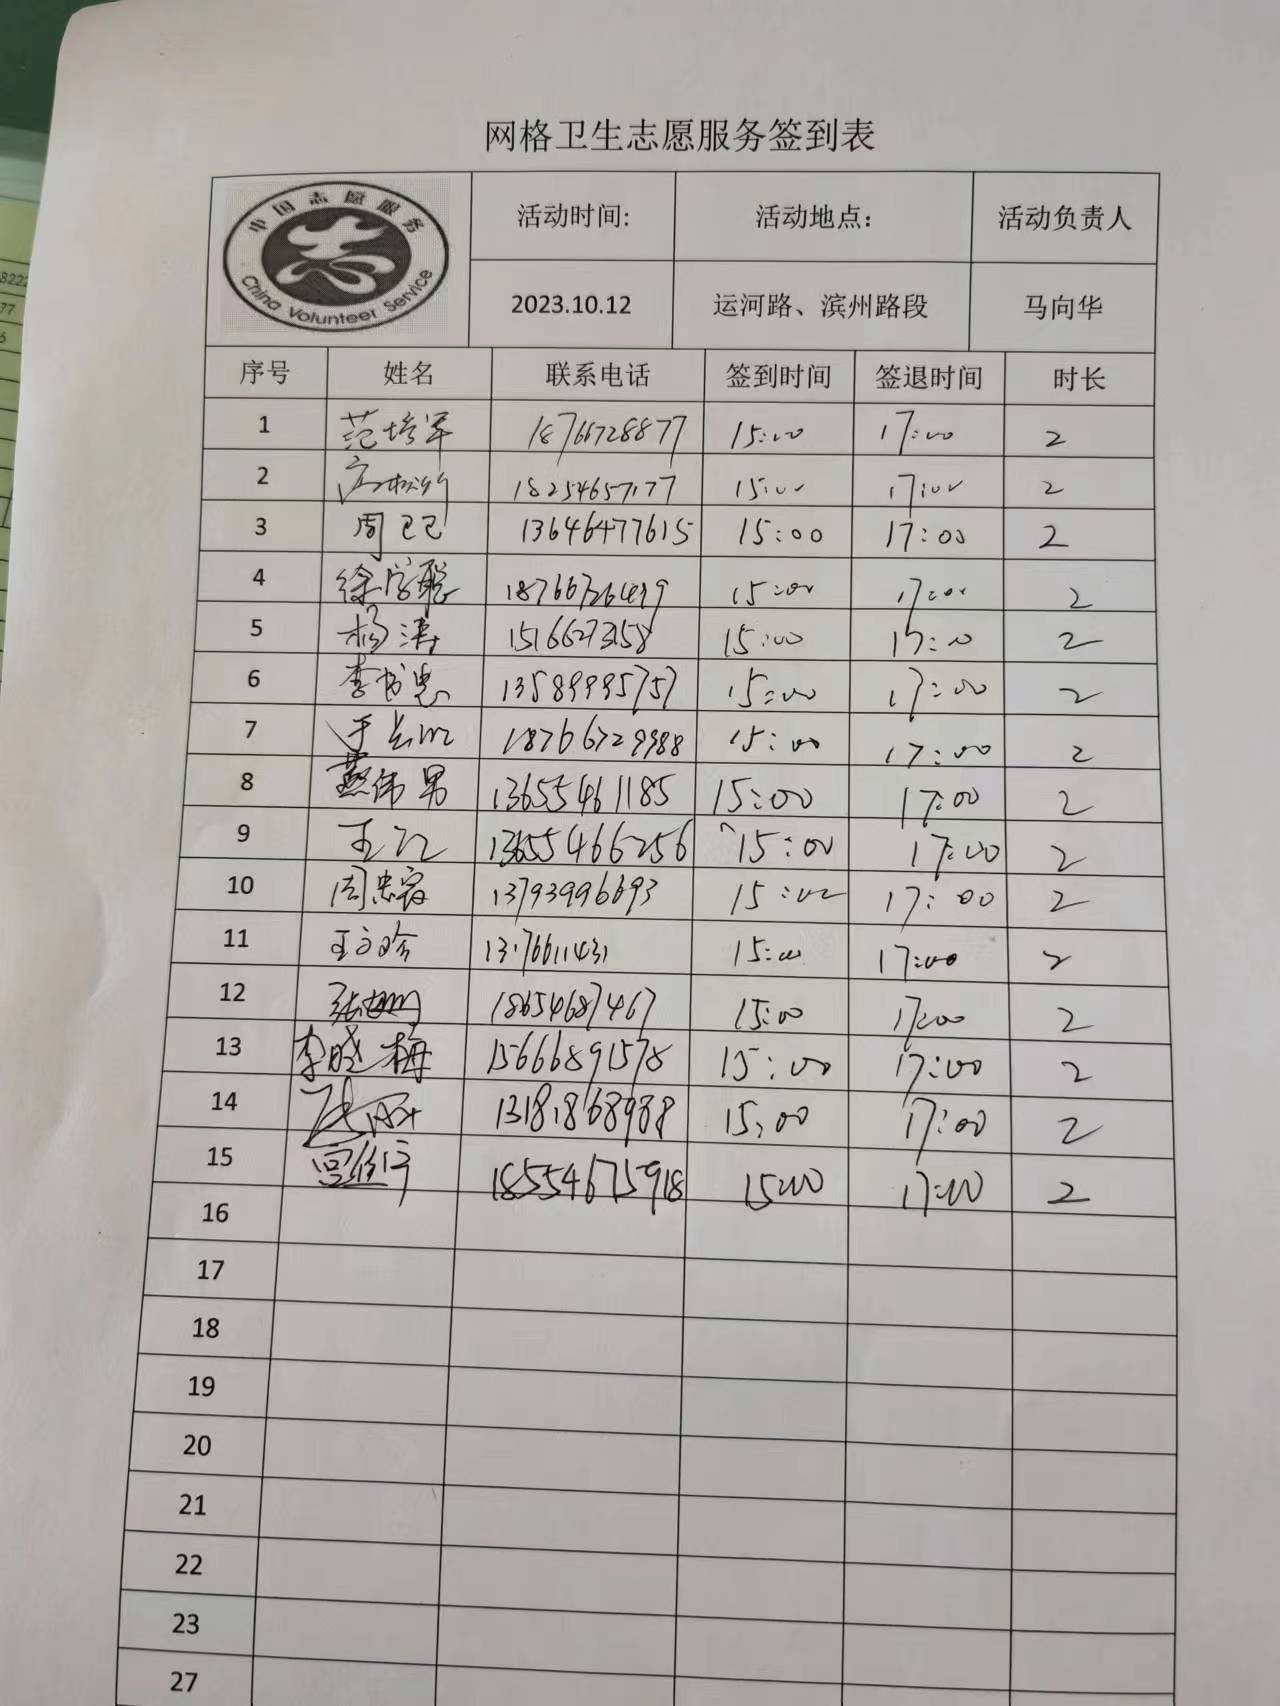 网格卫生志愿服务签到表
中国志愿服务
China Volunteer Service
活动时间: 活动地点: 活动负责人
2023.10.12 运河路、滨州路段 马向华
序号 姓名 联系电话 签到时间 签退时间 时长
1 范培军 18766728877 15:00 17:00 2
2 18254657177 15:00 17:00 2
3 周卫己 13646477615 15:00 17:00 2
4 徐学聪 18766726499 15:00 17:00 2
5 杨涛 15166273158 15:00 17:00 2
6 李书忠 13589995757 15:00 17:00 2
7 18766729988 15:00 17:00 2
8 燕伟男 13655461185 15:00 17:00 2
9 13655466256 15:00 17:00 2
10 周忠容 13793996693 15:00 17:00 2
11 15:00 17:00 2
12 18654687467 15:00 17:00 2
13 李晓梅 15666891578 15:00 17:00 2
14 13181868988 15:00 17:00 2
15 18554675918 15:00 17:00 2
16
17
18
19
20
21
22
23
27
8222
77
6